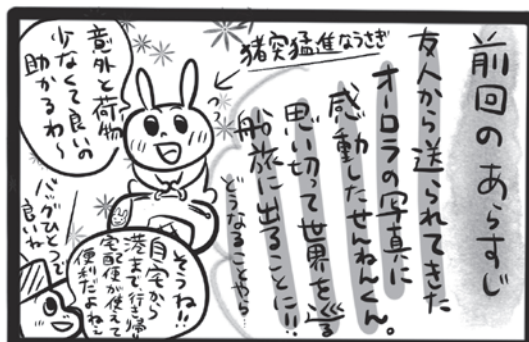 前回のあらすじ
友人から送られてきた
オーロラの写真に
感動したせんねんくん。
思い切って世界を巡る
船旅に出ることに!!
どうなることやら…
猪突猛進なうさぎ
意外と荷物
少なくて良いの
助かるわ〜
バッグひとつで
良いね
そうね!!
自宅から
港まで、行き帰り
宅配便が使えて
便利だよね〜